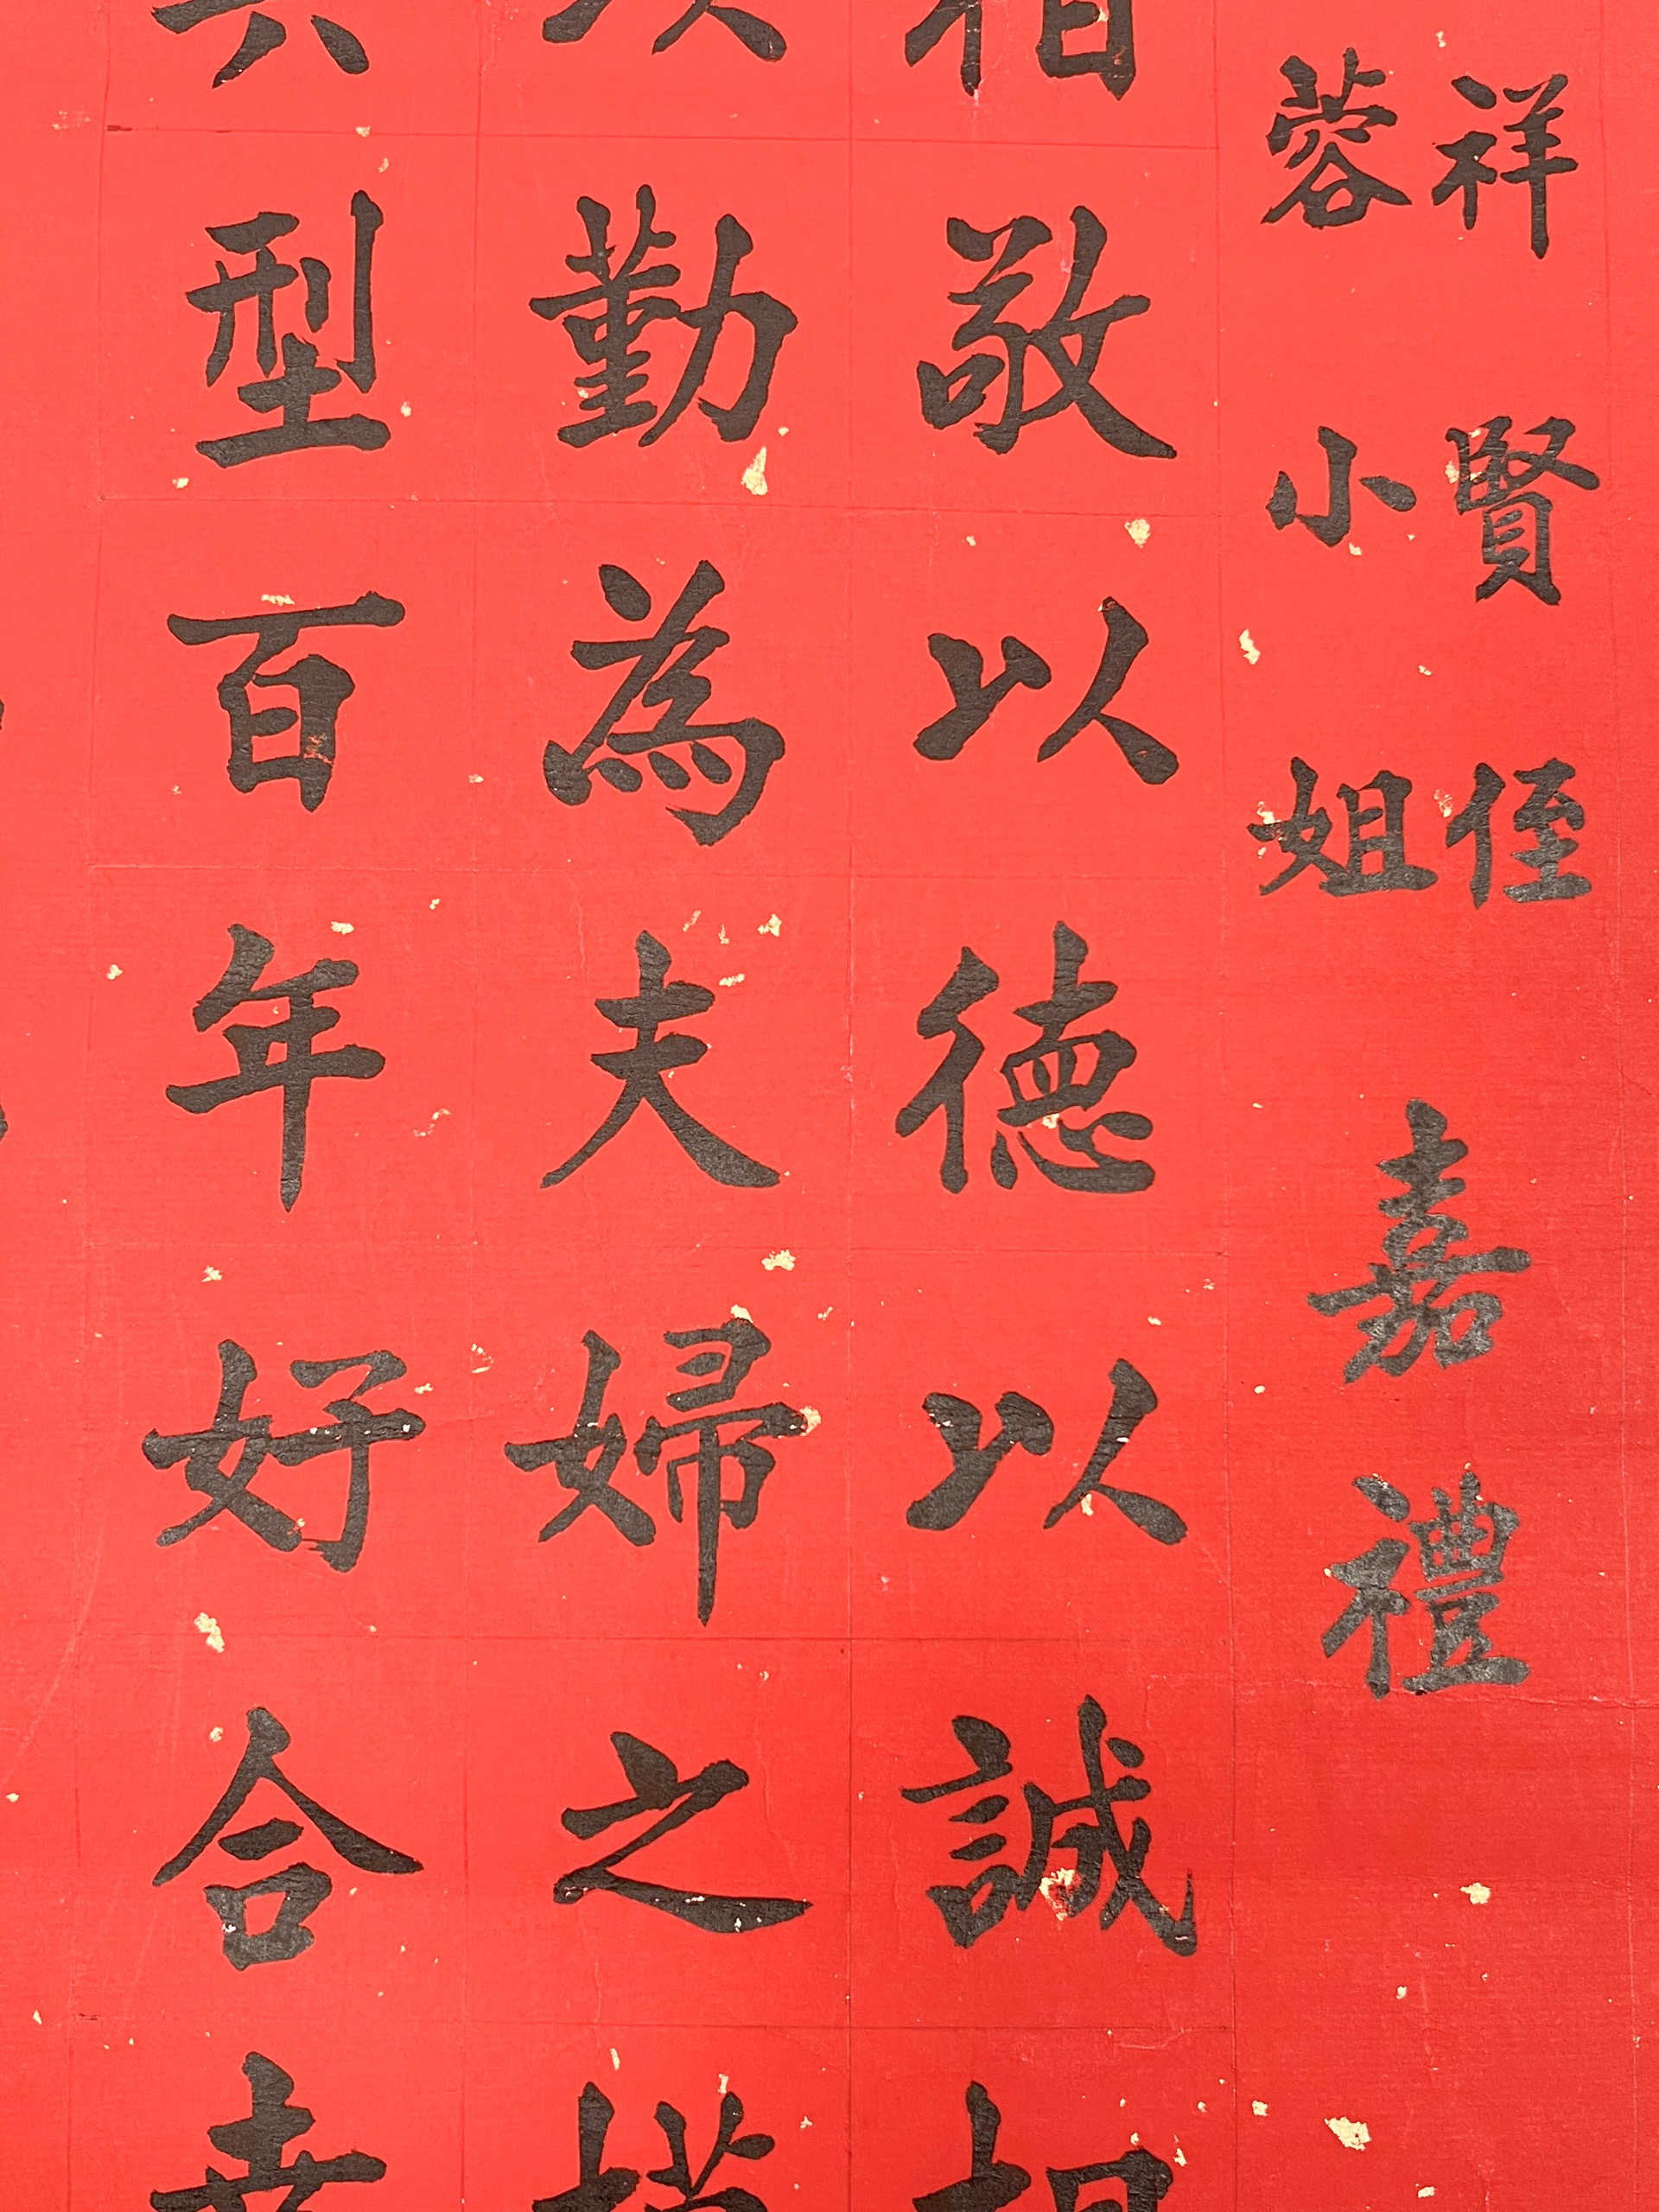 祥賢侄
蓉小姐
嘉禮
相敬以德以誠相
勤為夫婦之模
型百年好合幸